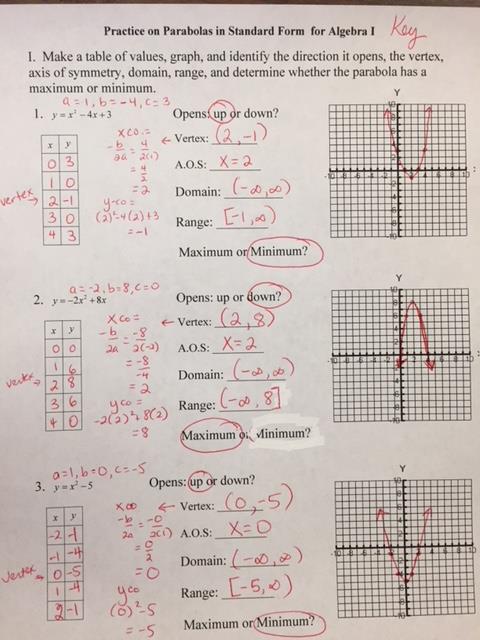 Practice on Parabolas in Standard Form for Algebra I Key
I. Make a table of values, graph, and identify the direction it opens, the vertex,
axis of symmetry, domain, range, and determine whether the parabola has a
maximum or minimum.
a=1, b=-4, c=3
1. y = x² – 4x + 3
Opens: up or down?
x y
0 3
1 0
2 -1
3 0
4 3
vertex
xco. =
-b/2a = 4/2(1)
= 4/2
= 2
y-co =
(2)²-4(2)+3
= -1
Vertex: (2, -1)
A.O.S: x=2
Domain: (-∞,∞)
Range: [-1,∞)
Maximum or Minimum?
Y
10
-10 -8 -6 -4 -2
a=-2, b=8, c=0
2. y = –2x² + 8x
Opens: up or down?
x y
0 0
1 6
2 8
3 6
4 0
vertex
xco =
-b/2a = -8/2(-2)
= -8/-4
= 2
yco =
-2(2)²+8(2)
= 8
Vertex: (2, 8)
A.O.S: x=2
Domain: (-∞,∞)
Range: (-∞, 8]
Maximum or Minimum?
Y
a=1, b=0, c=-5
3. y = x² – 5
Opens: up or down?
x y
-2 -1
-1 -4
0 -5
1 -4
2 -1
vertex
xco
-b/2a = -0/2(1)
= 0/2
= 0
yco
(0)²-5
= -5
Vertex: (0, -5)
A.O.S: x=0
Domain: (-∞,∞)
Range: [-5,∞)
Maximum or Minimum?
Y